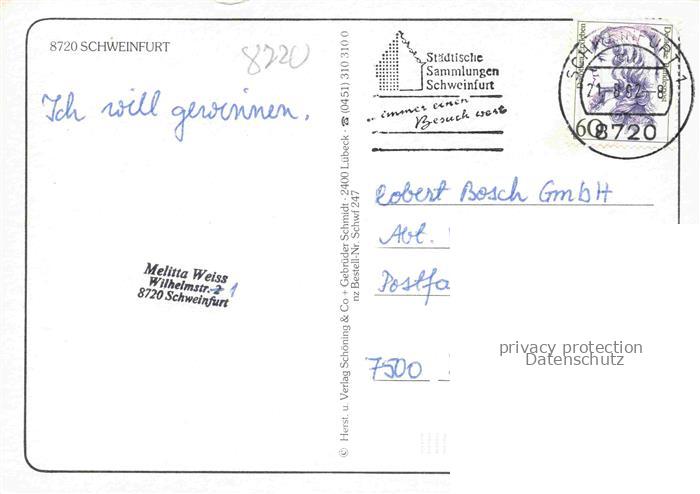 8720 SCHWEINFURT
8220
Ich will gewinnen.
Melitta Weiss
Wilhelmstr. 2 1
8720 Schweinfurt
© Herst. u. Verlag Schöning & Co + Gebrüder Schmidt · 2400 Lübeck · ☎ (0451) 310 310 0
nz Bestell-Nr. Schwf 247
Städtische
Sammlungen
Schweinfurt
... immer einen
Besuch wert
SCHWEINFURT 1
8720
60
Robert Bosch GmbH
Abt.
Postfa
7500
privacy protection
Datenschutz